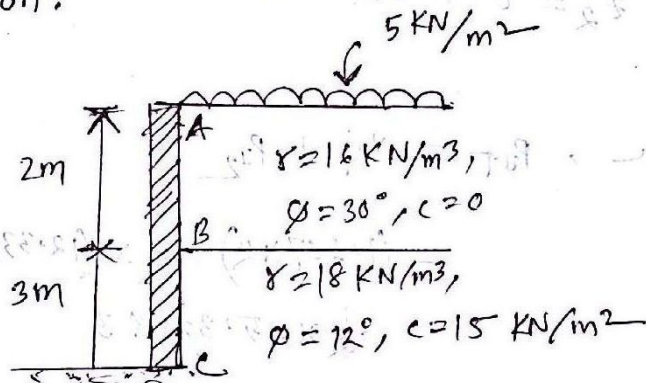 on.
5 KN/m2
A
2m
γ=16 KN/m3,
φ=30°, c=0
B
3m
γ=18 KN/m3,
φ=12°, c=15 KN/m2
C